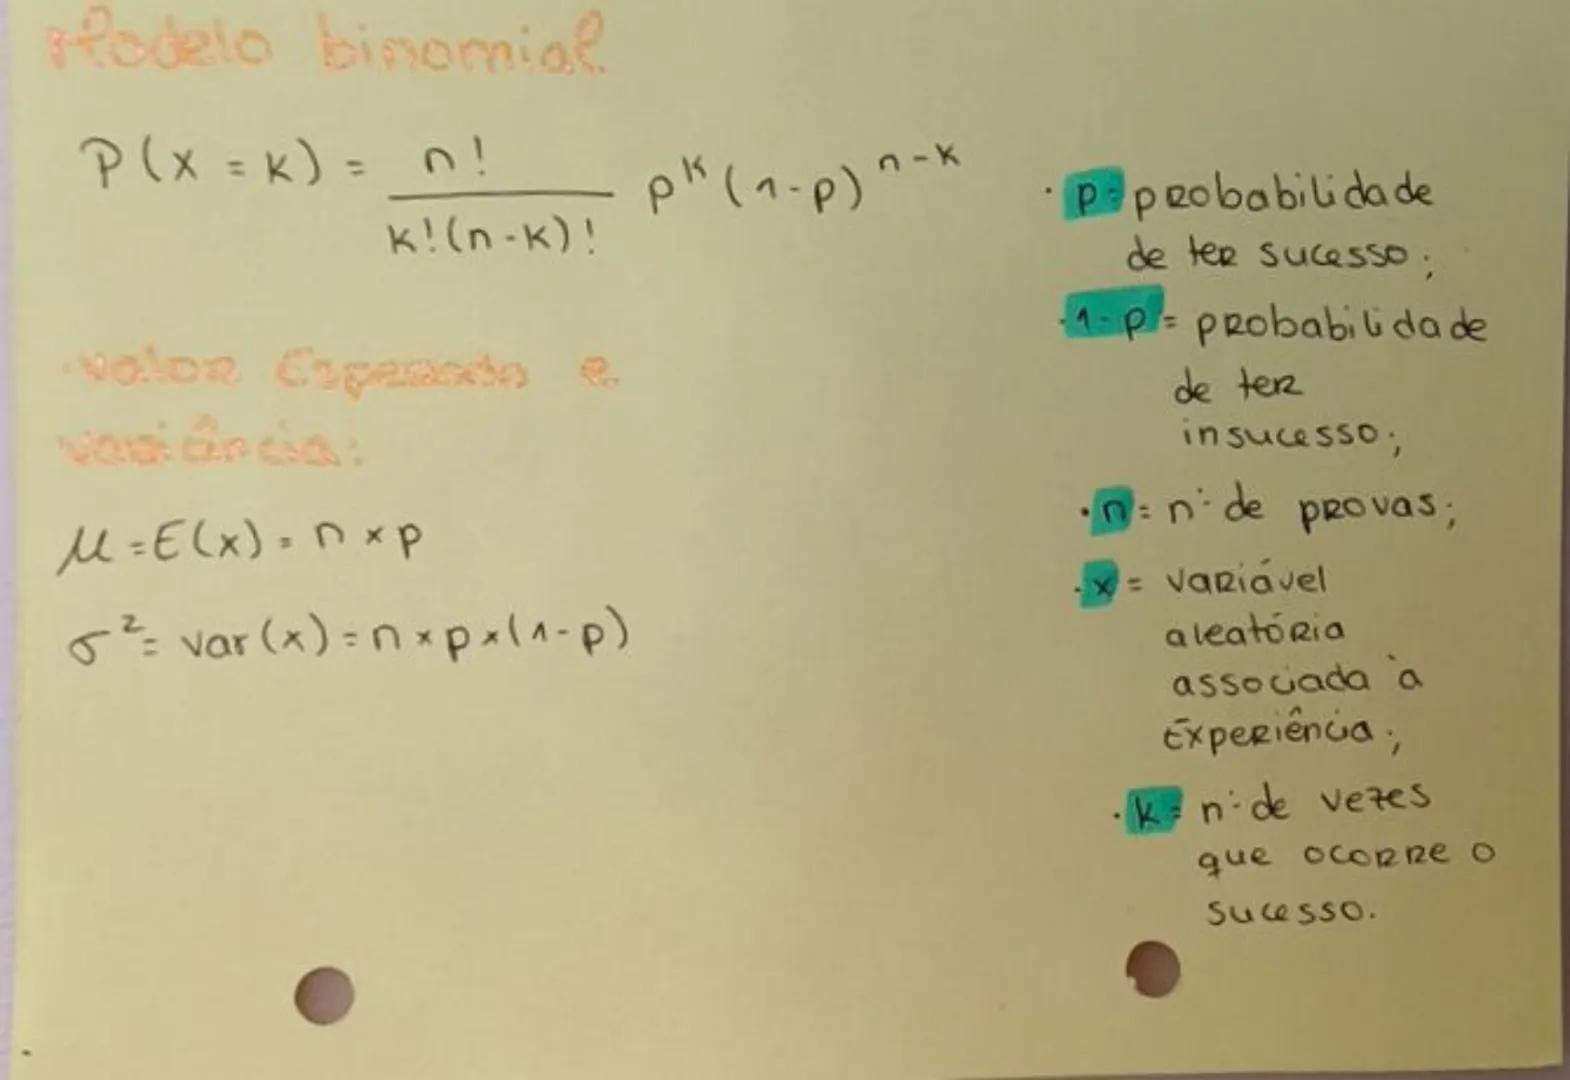 Modelo binomial
P(x = k) = n! / k!(n-k)! p^k (1-p)^n-k
• Valor Esperado e
variância:
μ = E(x) = n × p
σ² = var(x) = n × p × (1-p)
• p = probabilidade
de ter sucesso;
• 1-p = probabilidade
de ter
insucesso;
• n = nº de provas;
• x = variável
aleatória
associada à
Experiência;
• k = nº de vezes
que ocorre o
sucesso.